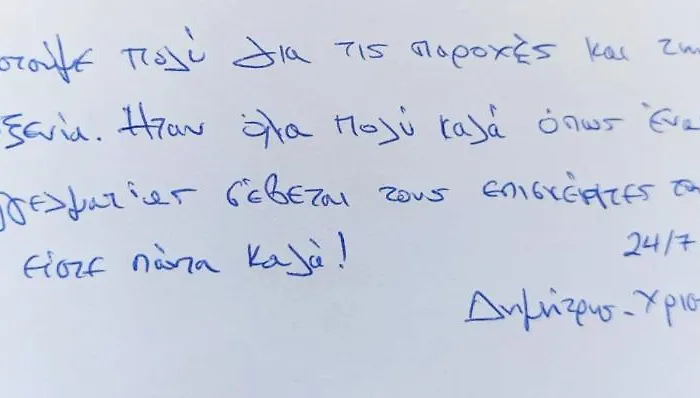 στούμε πολύ για τις παροχές και τη
ξενία. Ήταν όλα πολύ καλά όπως ένα
γελματίας σέβεται τους επισκέπτες το
είστε πάντα καλά!
24/7
Δημήτρης - Χρισ